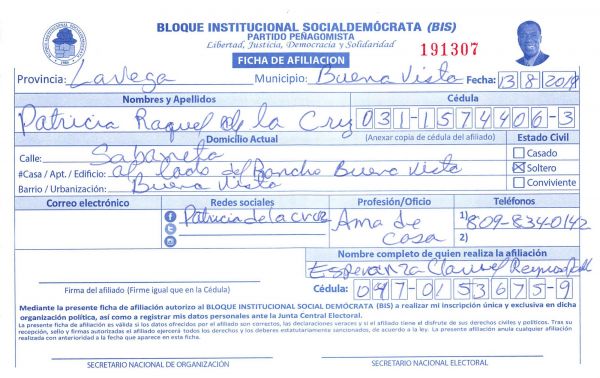 BLOQUE INSTITUCIONAL SOCIALDEMÓCRATA (BIS)
PARTIDO PEÑAGOMISTA
Libertad, Justicia, Democracia y Solidaridad
FICHA DE AFILIACION
191307
Provincia: La Vega Municipio: Buena Vista Fecha: 13 8 2018
Nombres y Apellidos Cédula
Patricia Raquel de la Cruz 031-1574406-3
Domicilio Actual (Anexar copia de cédula del afiliado) Estado Civil
Calle: Sabaneta
Casado
#Casa / Apt. / Edificio: al lado del Rancho Buena Vista
Soltero
Barrio / Urbanización: Buena Vista
Conviviente
Correo electrónico Redes sociales Profesión/Oficio Teléfonos
Patricia de la cruz Ama de casa 1) 809-834-0142
2)
Nombre completo de quien realiza la afiliación
Esperanza
Firma del afiliado (Firme igual que en la Cédula) Cédula: 047-0153675-9
Mediante la presente ficha de afiliación autorizo al BLOQUE INSTITUCIONAL SOCIAL DEMÓCRATA (BIS) a realizar mi inscripción única y exclusiva en dicha
organización política, así como a registrar mis datos personales ante la Junta Central Electoral.
La presente ficha de afiliación es válida si los datos ofrecidos por el afiliado son correctos, las declaraciones veraces y si el afiliado tiene el disfrute de sus derechos civiles y políticos. Tras su
recepción, sello y firmas autorizadas el afiliado ejercerá todos los derechos y los deberes estatutariamente sancionados, de acuerdo a la ley. La presente afiliación anula cualquier afiliación
realizada con anterioridad a la fecha que aparece en esta ficha.
SECRETARIO NACIONAL DE ORGANIZACIÓN SECRETARIO NACIONAL ELECTORAL